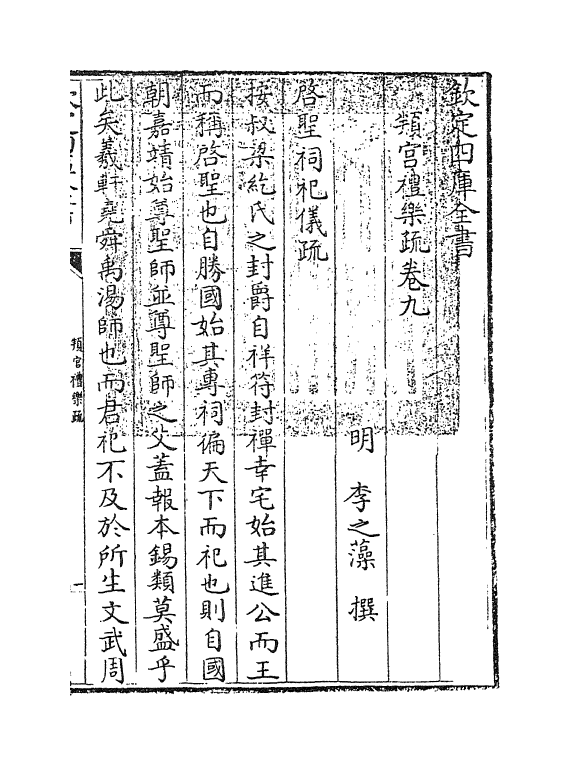 欽定四庫全書
頖宫禮樂疏卷九
明 李之藻 撰
啓聖祠祀儀疏
按叔梁紇氏之封爵自祥符封禪幸宅始其進公而王
而稱啓聖也自勝國始其專祠徧天下而祀也則自國
朝嘉靖始尊聖師並尊聖師之父蓋報本錫類莫盛乎
此矣羲軒堯舜禹湯師也而君祀不及於所生文武周
頖宫禮樂疏
一